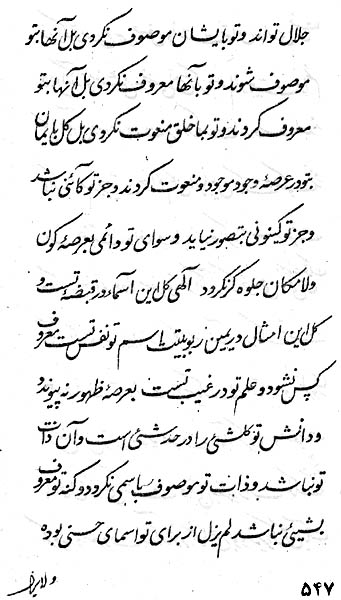 جلال تواند و تو بایشان موصوف نکردی بل آنها بتو
موصوف شوند و تو بآنها معروف نکردی بل آنها بتو
معروف کردند و تو بما خلق منعوت نکردی بل کل بایمان
بتو در عرصهٔ وجود موجود و منعوت کردند و جز تو کائنی نباشد
و جز تو کینونی بتصور نیاید و سوای تو دائمی بعرصهٔ کون
و لا مکان جلوه کر نکردد الهی کل این اسماء در قبضهٔ تست و
کل این امثال در یمین ربوبیتت اسم تو نفس تست معروف
کس نشود و علم تو در غیب تست بعرصهٔ ظهور نه پیوندد
و دانش تو کلشئ را در حد شئ است و آن ذات
تو نباشد و ذات تو موصوف باسمی نکردد و کنه تو معروف
بشیئی نباشد لم یزل از برای تو اسمای حسنی بوده
۵۴۷